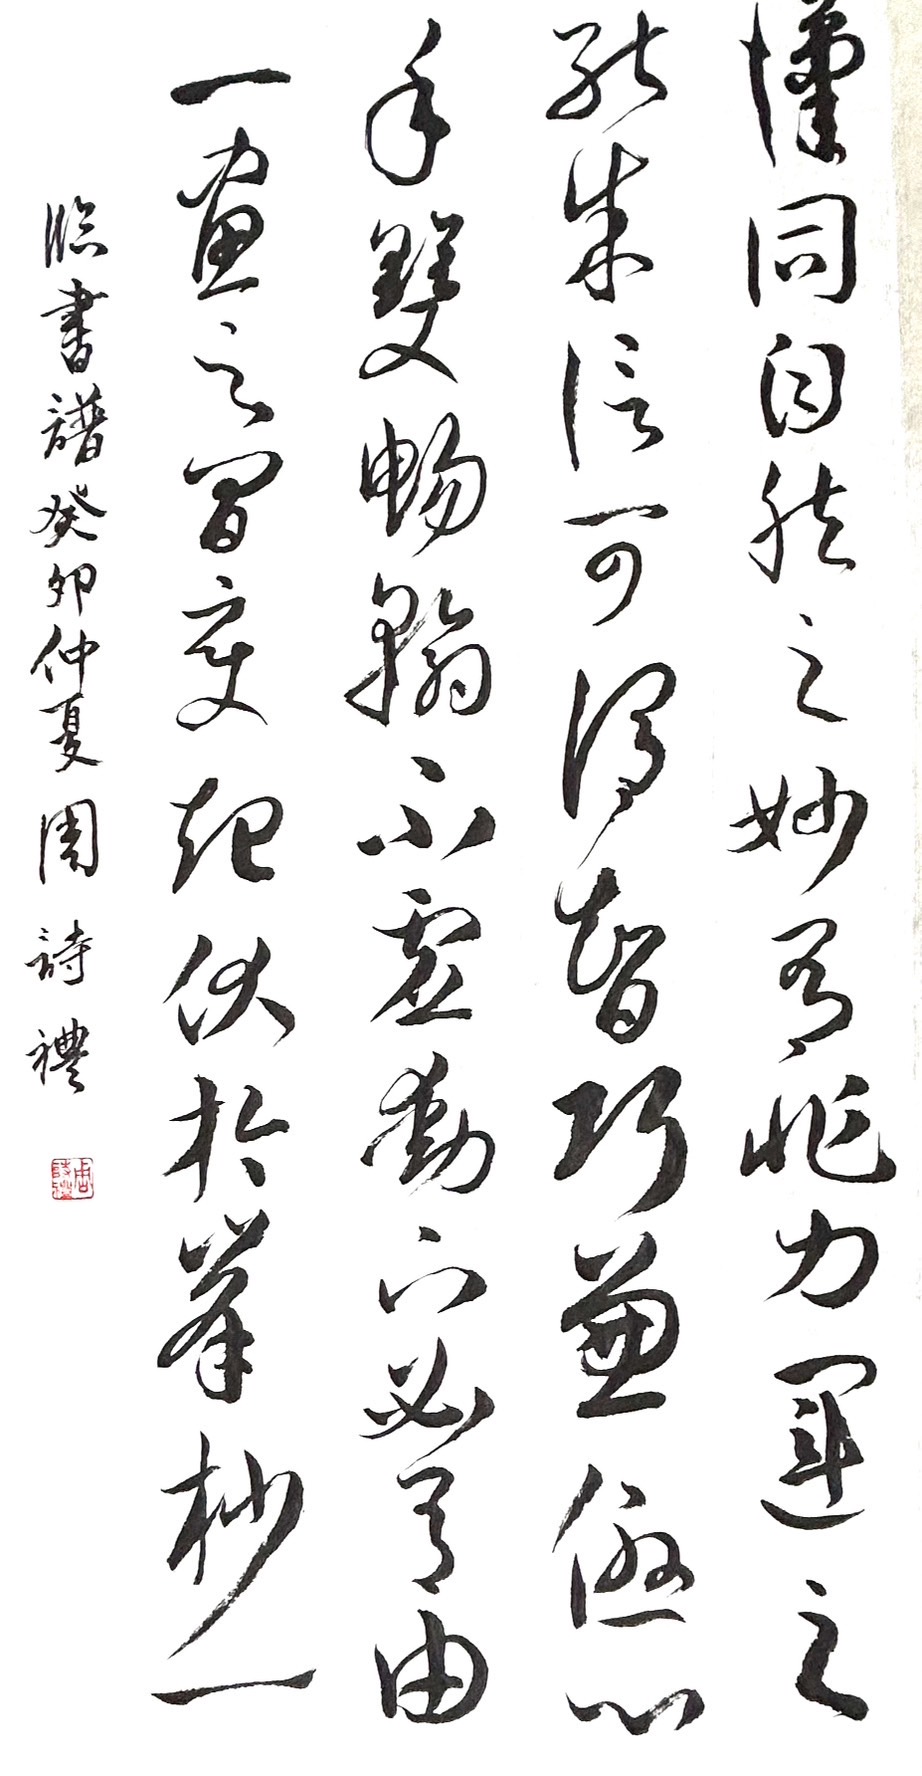 漢同自然之妙有非力運之
能成信可謂智巧兼優心
手雙暢翰不虛動下必有由
一畫之間變起伏於峯杪一
臨書譜癸卯仲夏周詩禮
周詩禮